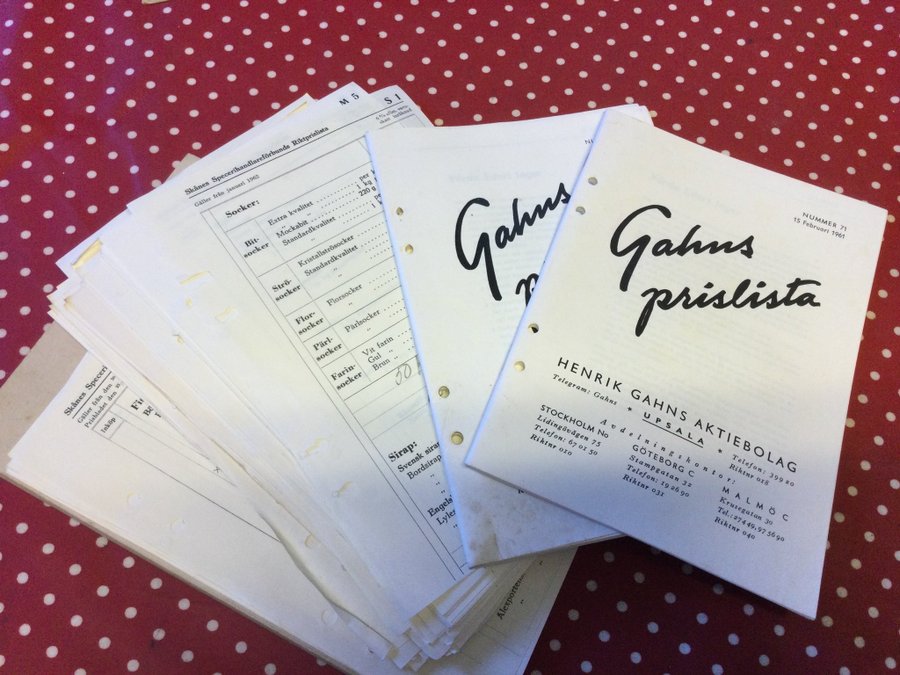 M 5
S 1
Skånes Specerihandlareförbunds Riktprislista
Gäller från januari 1962
Socker:
Bit-
socker
Extra kvalitet
Mockabit
Standardkvalitet
per k
1 kg
220 g
Strö-
socker
Kristallströsocker
Standardkvalitet
Flor-
socker
Florsocker
Pärl-
socker
Pärlsocker
Farin-
socker
Vit farin
Gul
Brun
Sirap:
Svensk sirap
Bordsirap
Engels
Lyle
Skånes Speceri
Gäller från den
Prisbladet den
Inköp
Fis
Gahns
NUMMER 71
15 Februari 1961
Gahns
prislista
HENRIK GAHNS AKTIEBOLAG
Telegram: Gahns * UPSALA * Telefon: 399 80
Riktnr 018
Avdelningskontor:
STOCKHOLM No
Lidingövägen 75
Telefon: 67 01 50
Riktnr 010
GÖTEBORG C
Stampgatan 32
Telefon: 19 26 90
Riktnr 031
MALMÖ C
Krusegatan 30
Tel.: 27449, 973690
Riktnr 040